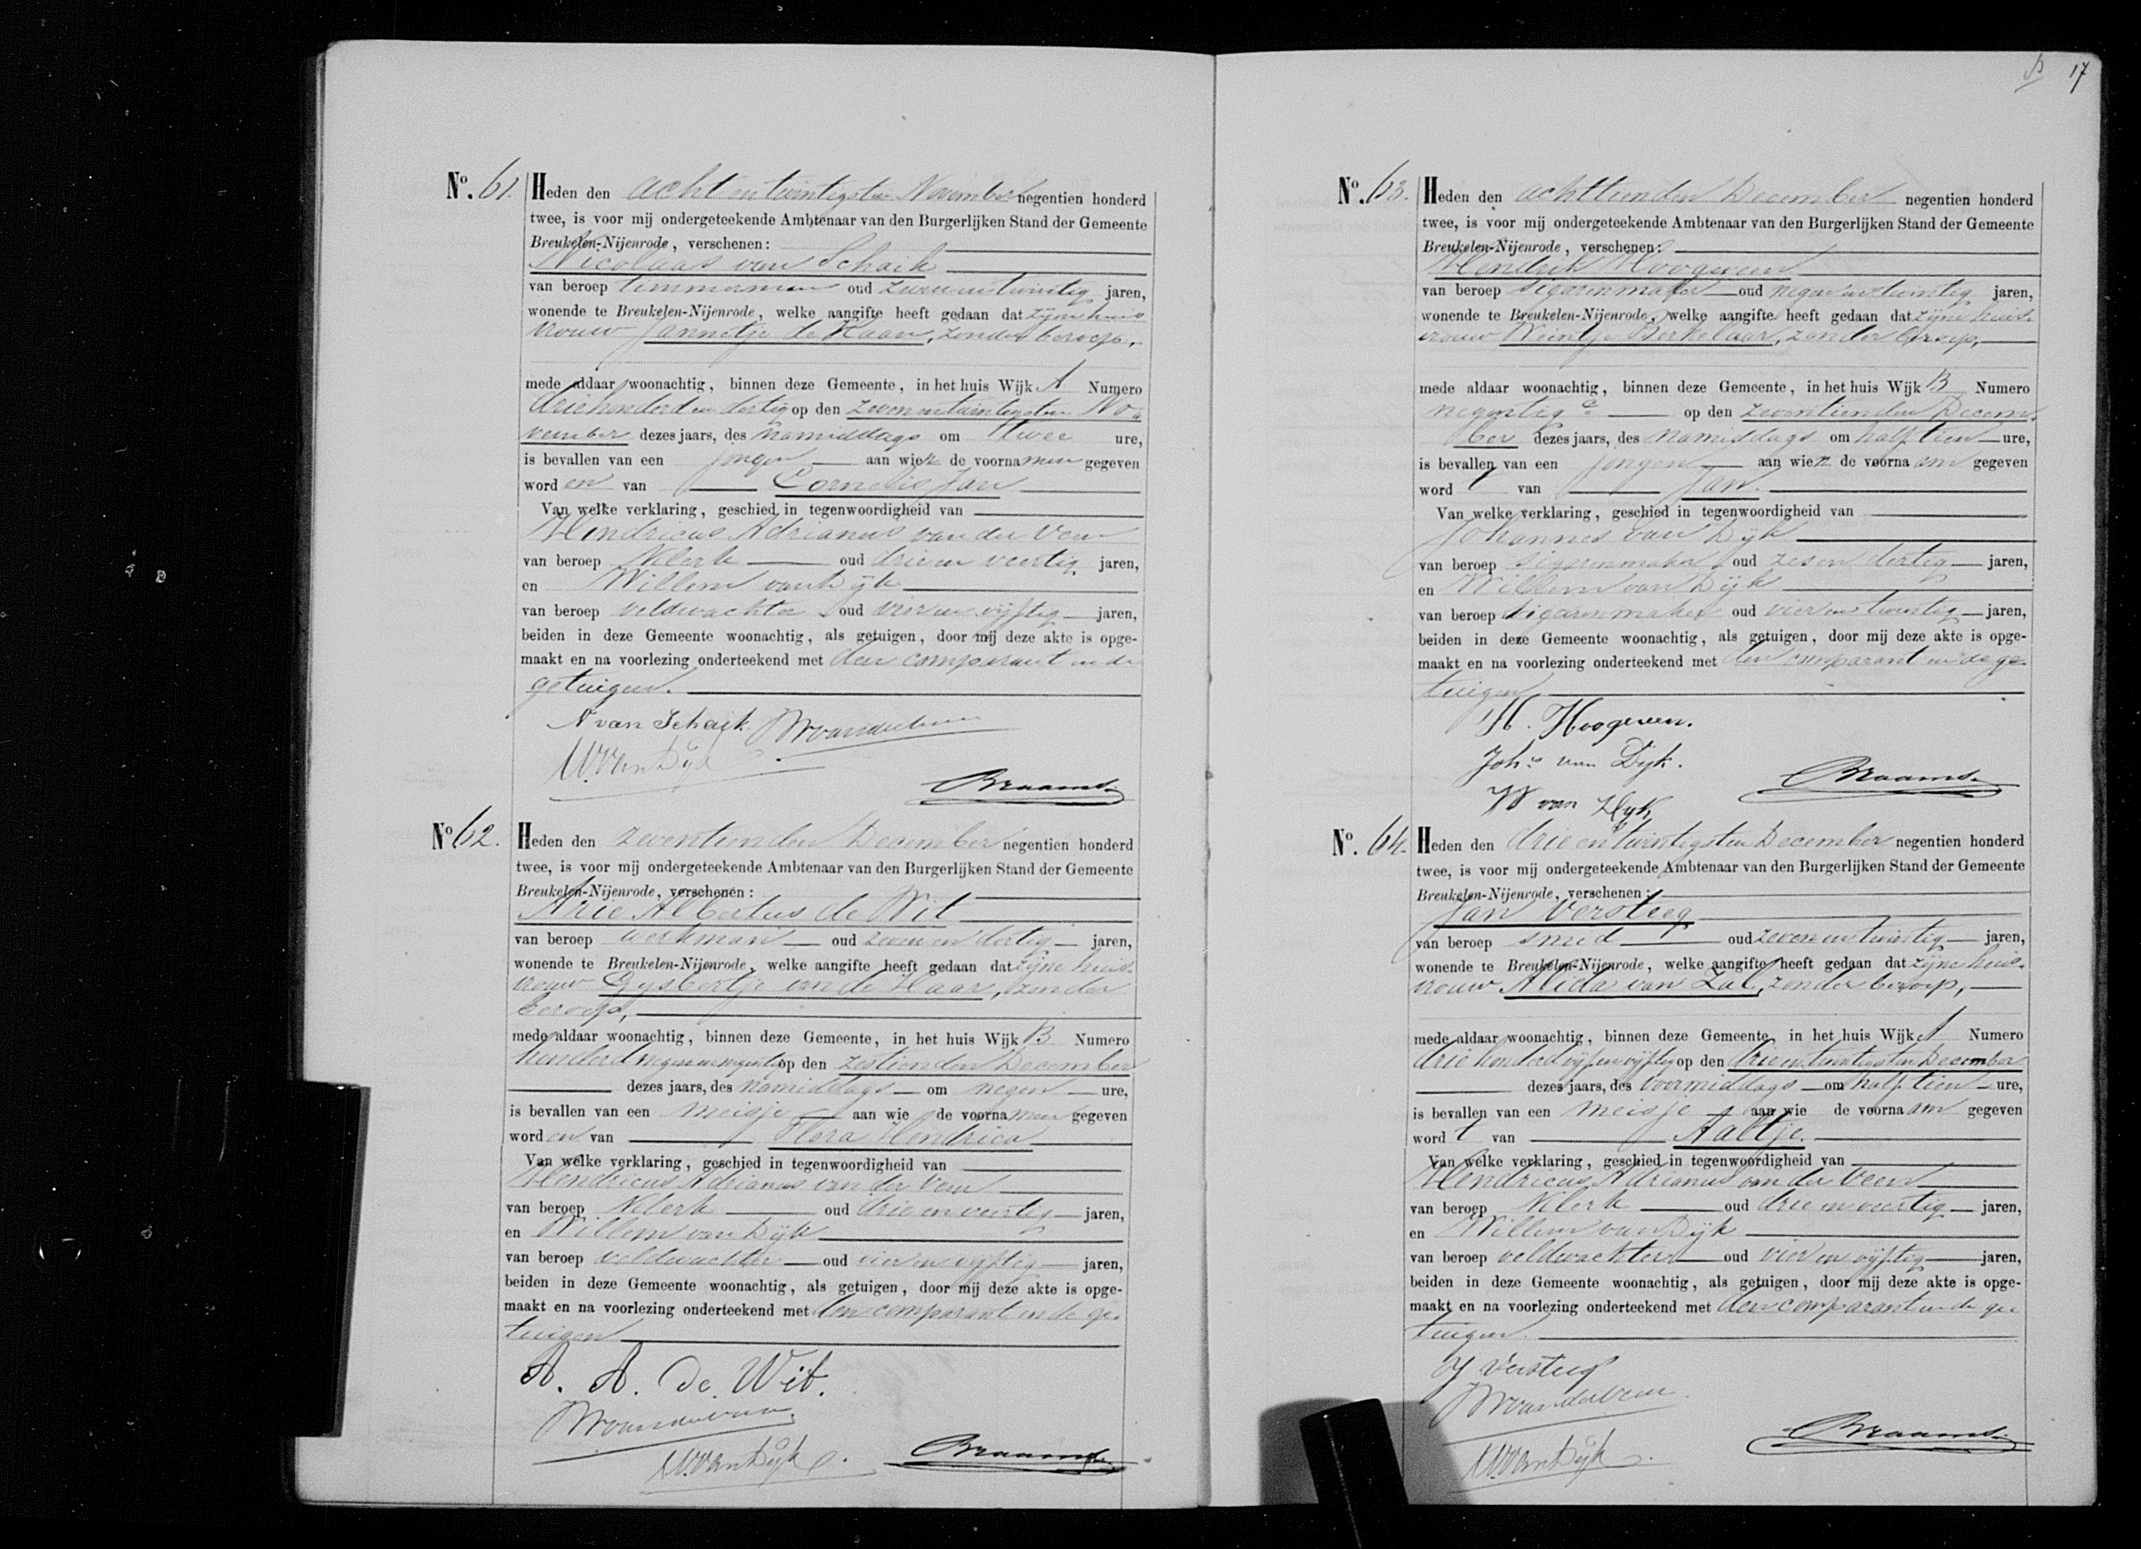 No. 61. Heden den acht en twintigsten November negentien honderd
twee, is voor mij ondergeteekende Ambtenaar van den Burgerlijken Stand der Gemeente
Breukelen-Nijenrode, verschenen:
Nicolaas van Schaik
van beroep timmerman oud zeven en twintig jaren,
wonende te Breukelen-Nijenrode, welke aangifte heeft gedaan dat zijne huis
vrouw Jannetje de Haan, zonder beroep,
mede aldaar woonachtig, binnen deze Gemeente, in het huis Wijk A Numero
driehonderd en dertig op den zeven en twintigsten No-
vember dezes jaars, des namiddags om twee ure,
is bevallen van een jongen aan wien de voornamen gegeven
worden van Cornelis Jan
Van welke verklaring, geschied in tegenwoordigheid van
Hendricus Adrianus van der Veen
van beroep klerk oud drie en veertig jaren,
en Willem van Dijk
van beroep veldwachter oud vier en vijftig jaren,
beiden in deze Gemeente woonachtig, als getuigen, door mij deze akte is opge-
maakt en na voorlezing onderteekend met den comparant en de
getuigen.
N van Schaik. HAvanderveen
W. van Dijk
Braams.
No 62. Heden den zeventienden December negentien honderd
twee, is voor mij ondergeteekende Ambtenaar van den Burgerlijken Stand der Gemeente
Breukelen-Nijenrode, verschenen:
Arie Albertus de Wit
van beroep werkman oud zeven en dertig jaren,
wonende te Breukelen-Nijenrode, welke aangifte heeft gedaan dat zijne huis-
vrouw Gijsbertje van de Haar, zonder
beroep,
mede aldaar woonachtig, binnen deze Gemeente, in het huis Wijk B Numero
honderd negen en negentig op den zestienden December
dezes jaars, des namiddags om negen ure,
is bevallen van een meisje aan wie de voornamen gegeven
worden van Flora Hendrica
Van welke verklaring, geschied in tegenwoordigheid van
Hendricus Adrianus van der Veen
van beroep klerk oud drie en veertig jaren,
en Willem van Dijk
van beroep veldwachter oud vier en vijftig jaren,
beiden in deze Gemeente woonachtig, als getuigen, door mij deze akte is opge-
maakt en na voorlezing onderteekend met den comparant en de ge-
tuigen
A. A. de. Wit.
HAvanderveen
W. van Dijk
Braams.
17
No. 63. Heden den achttienden December negentien honderd
twee, is voor mij ondergeteekende Ambtenaar van den Burgerlijken Stand der Gemeente
Breukelen-Nijenrode, verschenen:
Hendrik Hoogeveen
van beroep sigarenmaker oud negen en twintig jaren,
wonende te Breukelen-Nijenrode, welke aangifte heeft gedaan dat zijne huis-
vrouw Weintje Berkelaar, zonder beroep,
mede aldaar woonachtig, binnen deze Gemeente, in het huis Wijk B Numero
negentig c op den zeventienden Decem-
ber dezes jaars, des namiddags om half tien ure,
is bevallen van een jongen aan wien de voornaam gegeven
wordt van Jan.
Van welke verklaring, geschied in tegenwoordigheid van
Johannes van Dijk
van beroep sigarenmaker oud zes en dertig jaren,
en Willem van Dijk
van beroep sigarenmaker oud vier en twintig jaren,
beiden in deze Gemeente woonachtig, als getuigen, door mij deze akte is opge-
maakt en na voorlezing onderteekend met den comparant en de ge-
tuigen
H. Hoogeveen.
Joh.s van Dijk.
W van Dijk
Braams.
No. 64. Heden den drie en twintigsten December negentien honderd
twee, is voor mij ondergeteekende Ambtenaar van den Burgerlijken Stand der Gemeente
Breukelen-Nijenrode, verschenen:
Jan Versteeg
van beroep smid oud zeven en twintig jaren,
wonende te Breukelen-Nijenrode, welke aangifte heeft gedaan dat zijne huis-
vrouw Alida van Zal, zonder beroep,
mede aldaar woonachtig, binnen deze Gemeente, in het huis Wijk A Numero
driehonderd vijf en vijftig op den drie en twintigsten December
dezes jaars, des voormiddags om half tien ure,
is bevallen van een meisje aan wie de voornaam gegeven
wordt van Aaltje.
Van welke verklaring, geschied in tegenwoordigheid van
Hendricus Adrianus van der Veen
van beroep klerk oud drie en veertig jaren,
en Willem van Dijk
van beroep veldwachter oud vier en vijftig jaren,
beiden in deze Gemeente woonachtig, als getuigen, door mij deze akte is opge-
maakt en na voorlezing onderteekend met den comparant en de ge-
tuigen.
J Versteeg
HAvanderveen
W. van Dijk
Braams.